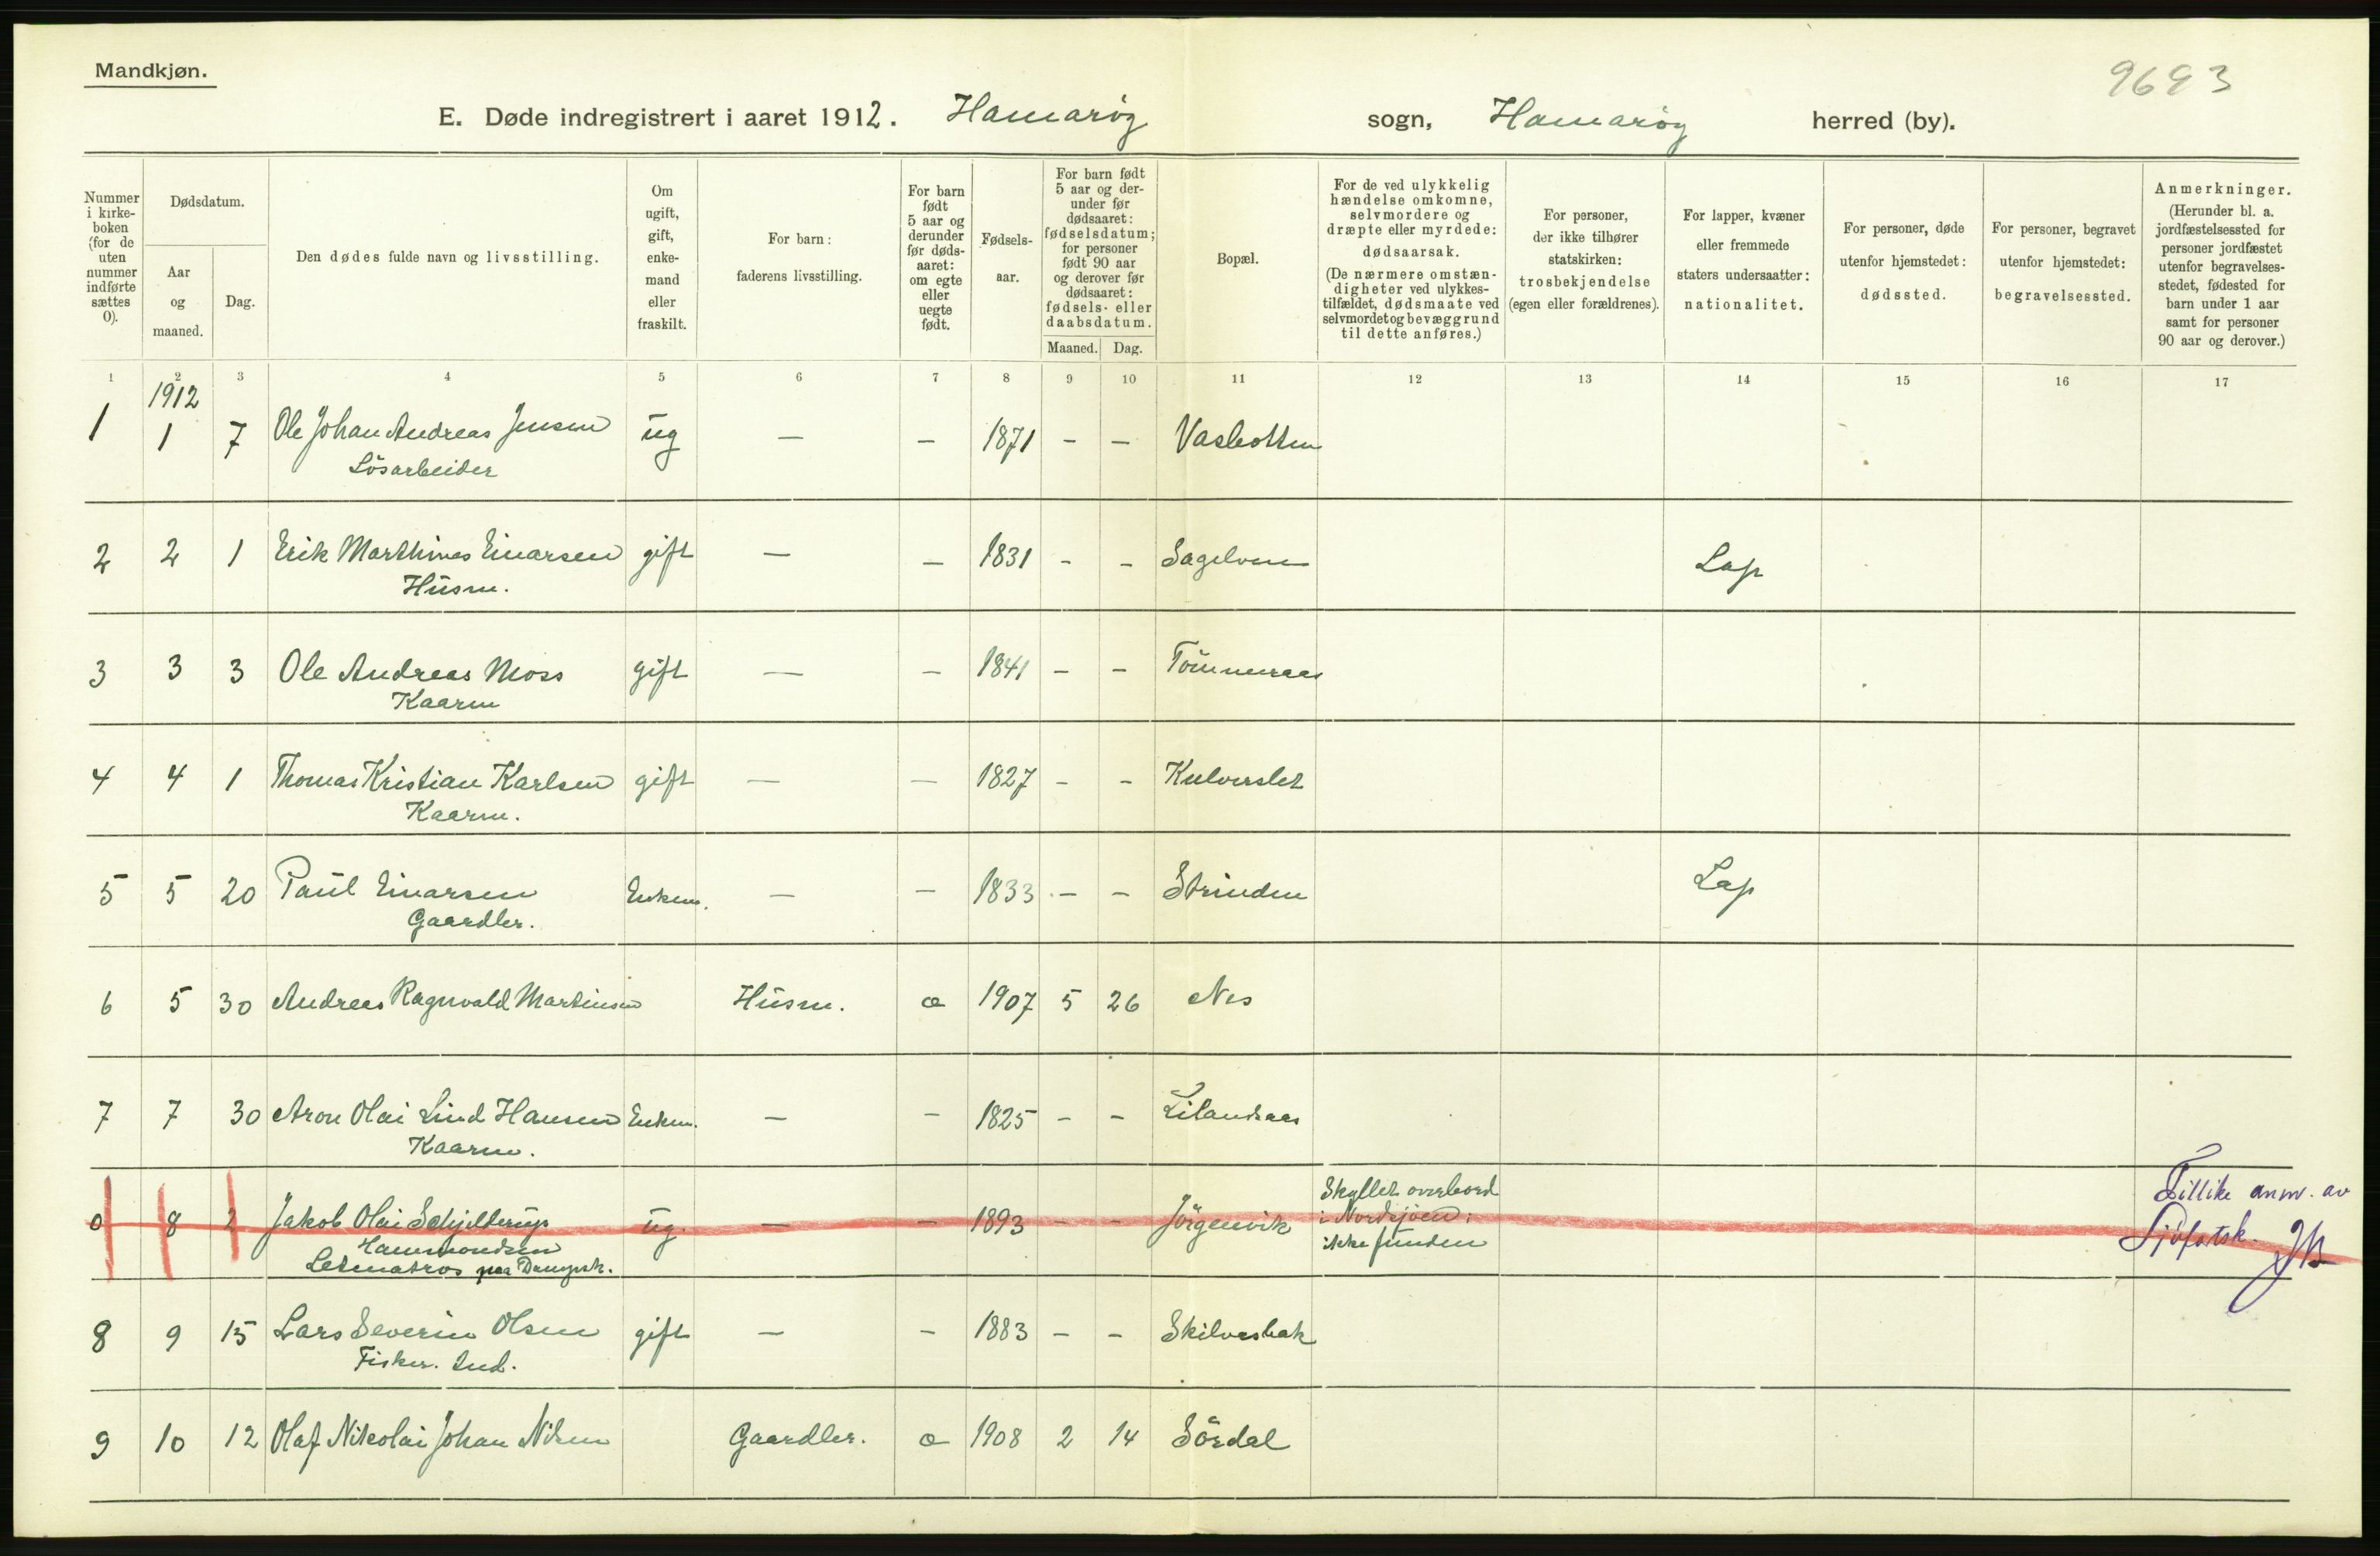 Mandkjøn.
9693
E. Døde indregistrert i aaret 1912. Hamarøy sogn, Hamarøy herred (by).
Nummer i kirke- boken (for de uten nummer indførte sættes 0).
Dødsdatum.
Aar og maaned.
Dag.
Den dødes fulde navn og livsstilling.
Om ugift, gift, enke- mand eller fraskilt.
For barn: faderens livsstilling.
For barn født 5 aar og derunder før døds- aaret: om egte eller uegte født.
Fødsels- aar.
For barn født 5 aar og der- under før dødsaaret: fødselsdatum; for personer født 90 aar og derover før dødsaaret: fødsels- eller daabsdatum.
Maaned. Dag.
Bopæl.
For de ved ulykkelig hændelse omkomne, selvmordere og dræpte eller myrdede: dødsaarsak. (De nærmere omstæn- digheter ved ulykkes- tilfældet, dødsmaate ved selvmordet og bevæggrund til dette anføres.)
For personer, der ikke tilhører statskirken: trosbekjendelse (egen eller forældrenes).
For lapper, kvæner eller fremmede staters undersaatter: nationalitet.
For personer, døde utenfor hjemstedet: dødssted.
For personer, begravet utenfor hjemstedet: begravelsessted.
Anmerkninger. (Herunder bl. a. jordfæstelsessted for personer jordfæstet utenfor begravelses- stedet, fødested for barn under 1 aar samt for personer 90 aar og derover.)
1 2 3 4 5 6 7 8 9 10 11 12 13 14 15 16 17
1912
1 1 7 Ole Johan Andreas Jensen ug — — 1871 - - Vasbotten
Lösarbeider
2 2 1 Erik Marthines Einarsen gift — — 1831 - - Sagelven Lap
Husm.
3 3 3 Ole Andreas Moss gift — — 1841 - - Tömmeraas
Kaarm
4 4 1 Thomas Kristian Karlsen gift — — 1827 - - Kulverslet
Kaarm.
5 5 20 Paul Einarsen Enkem. — — 1833 - - Strinden Lap
Gaardbr.
6 5 30 Andreas Ragnvald Martinsen Husm. æ 1907 5 26 Nes
7 7 30 Aron Olai Lind Hansen Enkem. — — 1825 - - Lilandsaas
Kaarm.
0 8 2 Jakob Olai Schjelderup ug. — — 1893 - - Jörgenvik Skyllet overbord
Hammondsen i Nordsjöen: Tillike anm. av
Letmatros paa Dampsk. ikke funden Sjöfartsk.
8 9 15 Lars Severin Olsen gift — — 1883 - - Skilvasbak
Fisker. Ind.
9 10 12 Olaf Nikolai Johan Nilsen Gaardbr. æ 1908 2 14 Sördal